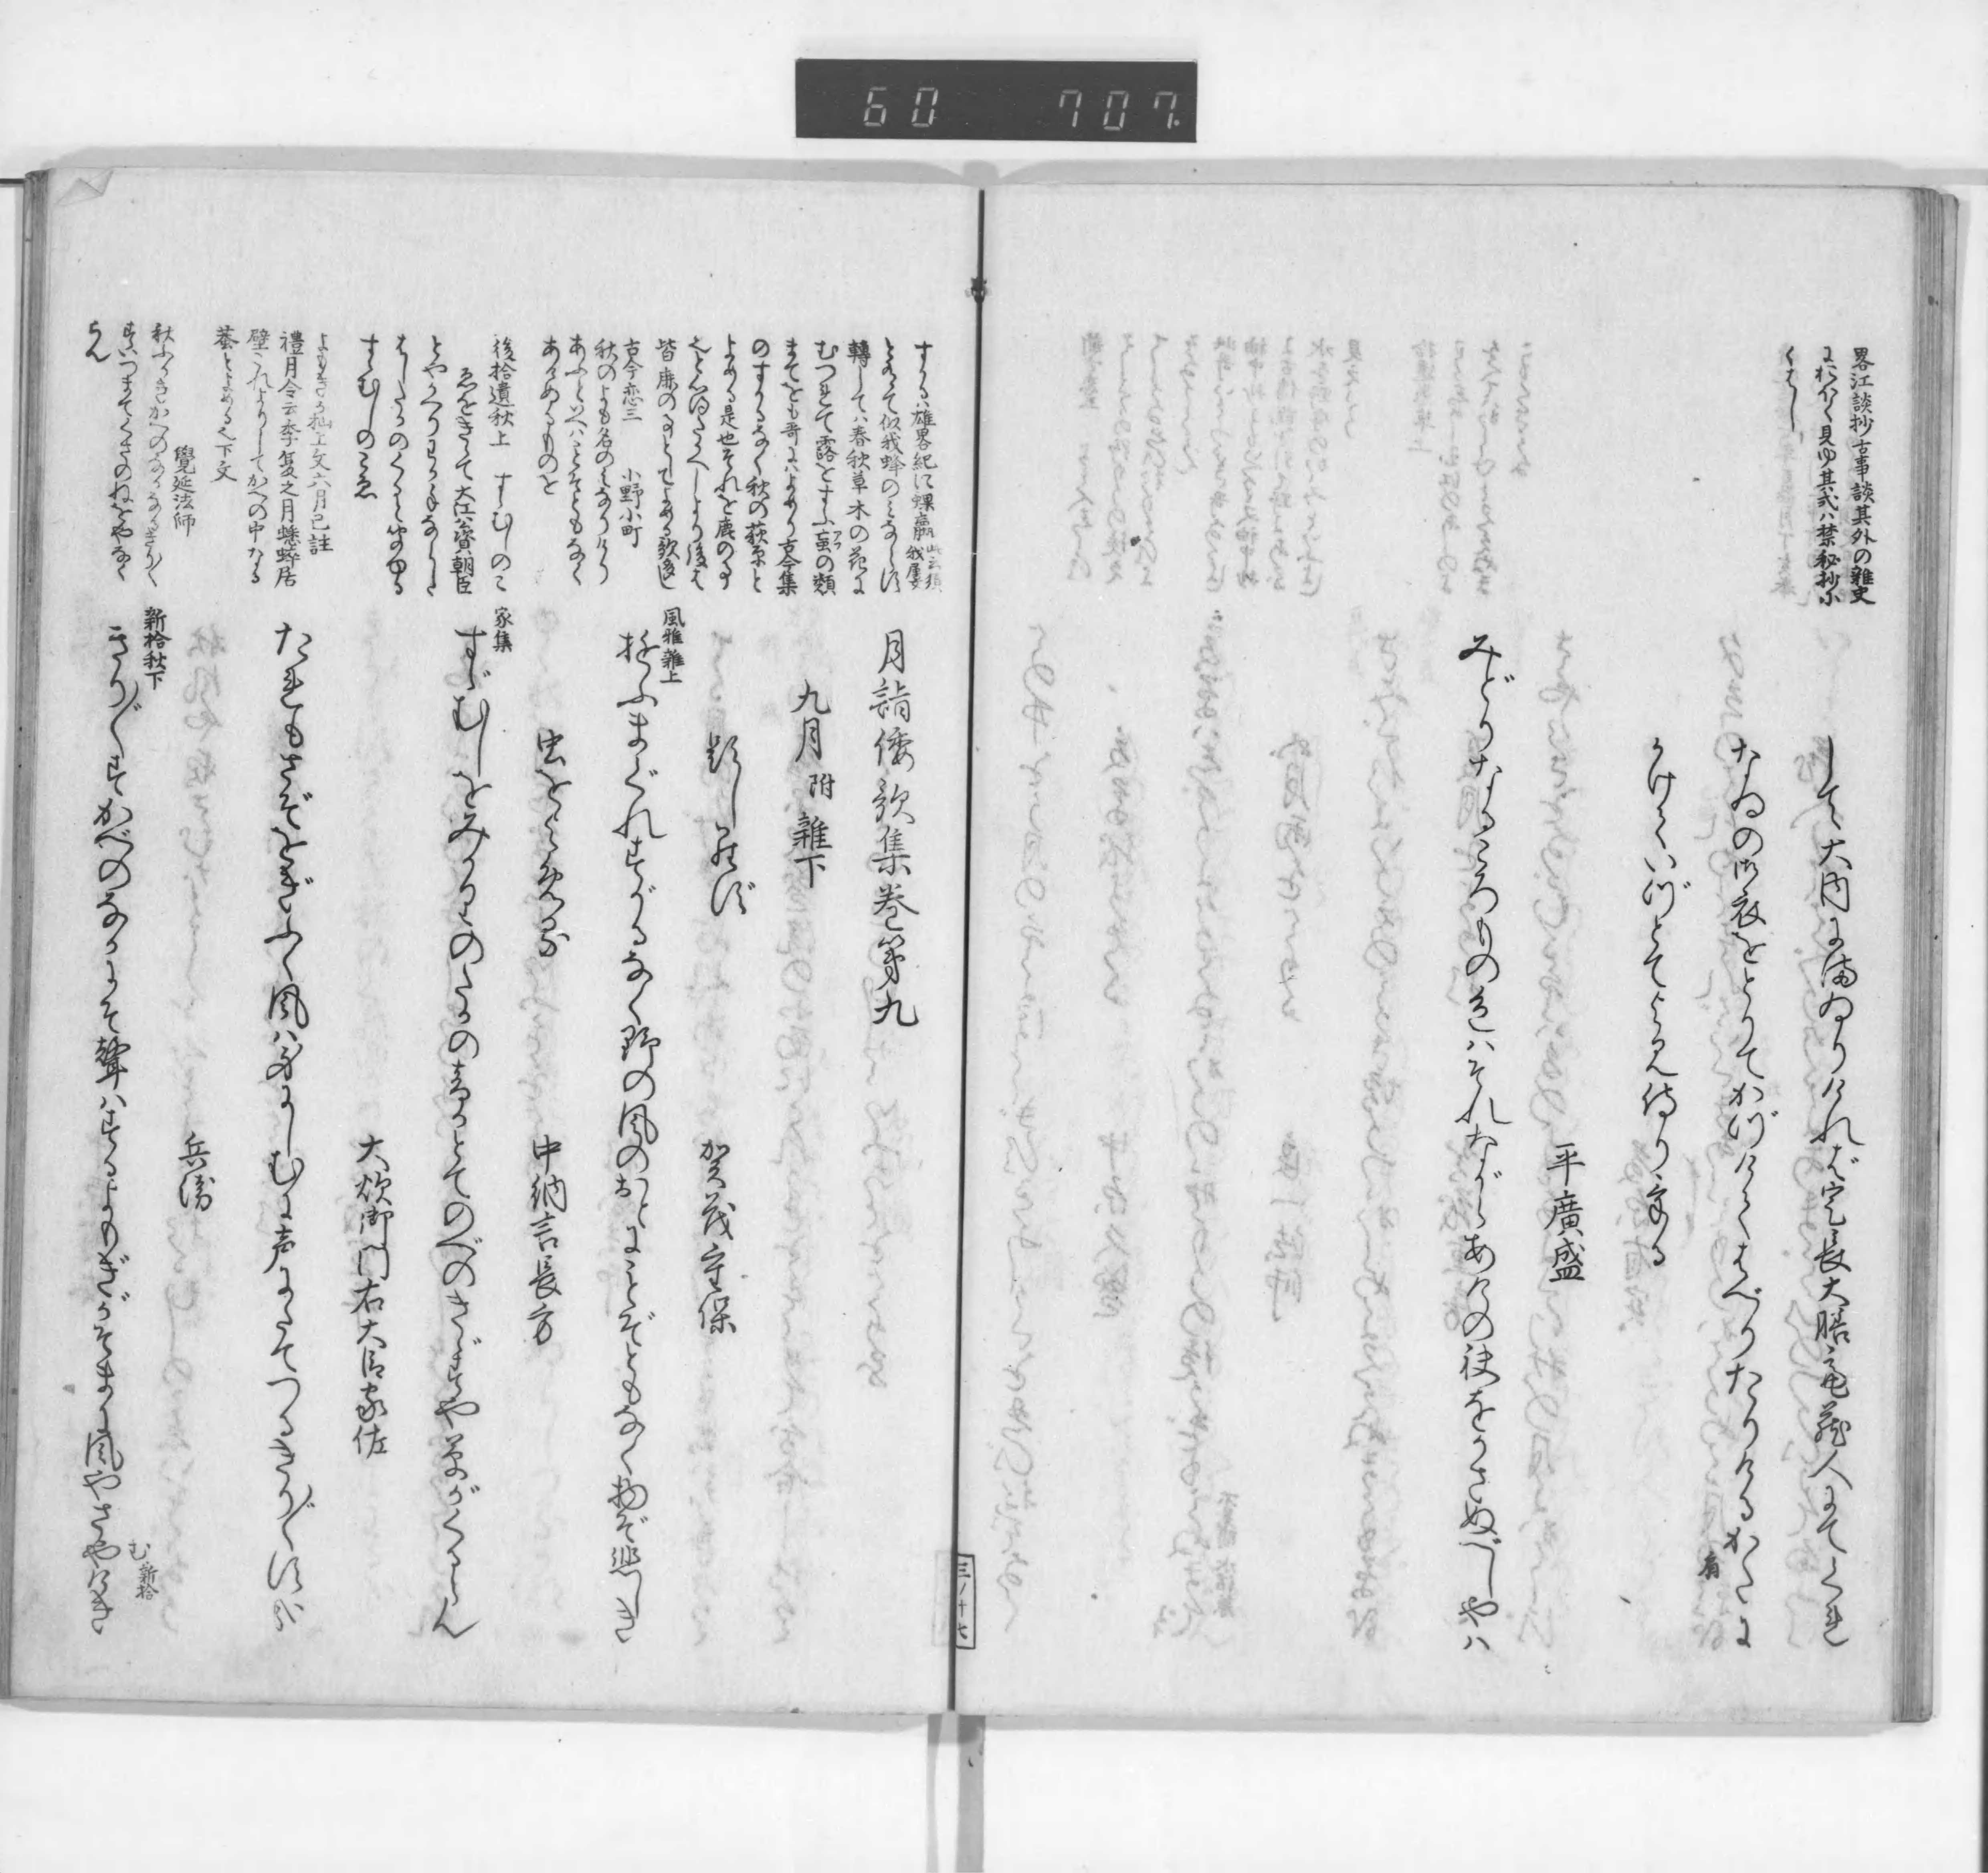 60 707.
畧江談抄古事談其外の雜史
くはし
して大内にまゐりけれバ定長大膳亮藏人にてくれ
なゐの御衣をとりてかづけくはべりたりけるかたに
肩
かけていづとてよみ侍りける
平廣盛
みどりなるころもの色ハそれながらあけの袂をかさぬべしやハ
三ノ十七
月詣倭歌集巻第九
九月 附 雜下
題しらず
賀茂重保
風雅雜上
ゆふまぐれすがるなく野の風のおとにことぞともなく物ぞ悲しき
虫をよめる
中納言長方
家集
すゞむしをみかりののたかの音かとてのべのきゞすや草がくるらん
大炊御門右大臣家佐
たれもさぞをぎふく風ハ身にしむに声たてつるきり〴〵すかな
兵衛
新拾秋下
きり〴〵すかべのなかにぞ聲ハするよもぎがそまに風やさやけき
む 新拾
するハ雄畧紀に蜾蠃 此云須我屢
轉してハ春秋草木の花に
むつれて露をすふ䖟の類
まてをも哥にハよめり古今集
のするなく秋の萩原と
よめる是也それを鹿の事
皆鹿の事としてよめる歌多し
古今恋三 小野小町
秋のよも名のミなりけり
あふといへハことそともなく
あけぬるものを
後拾遺秋上 すゝむしのこ
ゑをきゝて 大江公資朝臣
とやかへりわか手ならしゝ
はしたかのくると聞ゆる
すゝむしのこゑ
よもきか杣上文六月已註
禮月令云季夏之月蟋蟀居
壁これよりしてかへの中なる
蛬とよめる也下文
覺延法師
秋ふかきかへのなかなるきり〳〵
すいつまてくさのねをやなく
らん